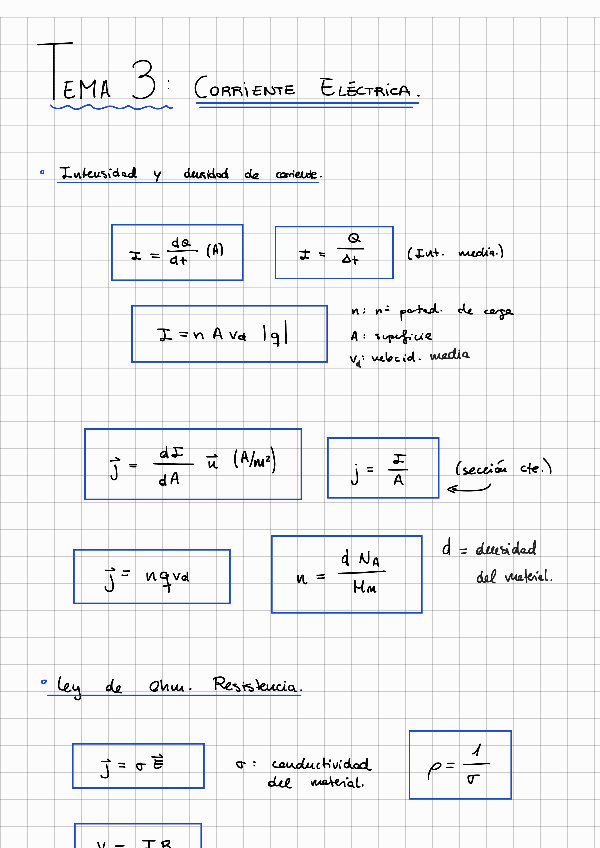 TEMA 3: CORRIENTE ELÉCTRICA.
Intensidad y densidad de corriente.
I = dQ/dt (A) I = Q/Δt (Int. media.)
I = n A vd |q|
n: nº partíd. de carga
A: superficie
vd: velocid. media
j⃗ = dI/dA u⃗ (A/m²) j = I/A (sección cte.)
j⃗ = n q vd n = d NA / Mm
d = densidad
del material.
Ley de Ohm. Resistencia.
j⃗ = σ E⃗
σ: conductividad
del material.
ρ = 1/σ
V = I R